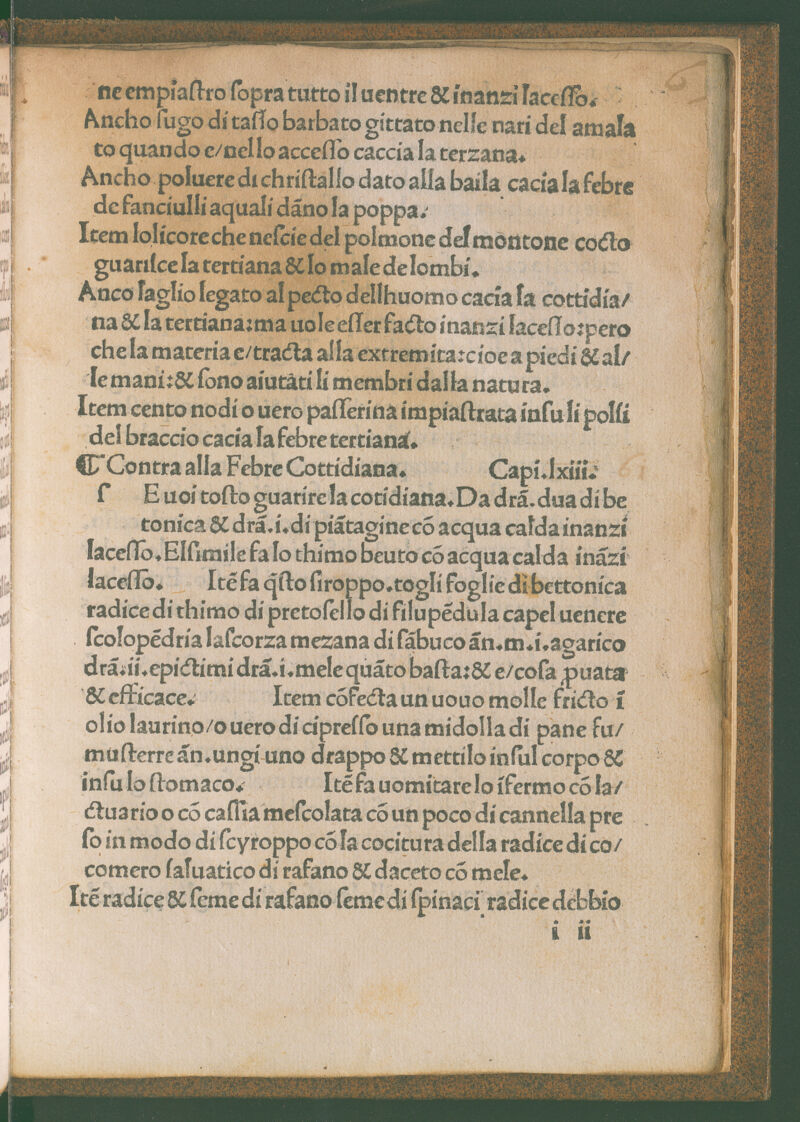 ne empiaſtro ſopra tutto il uentre & inanzi laceſſo.
Ancho ſugo di taſſo barbato gittato nelle nari del amala
to quando e/nello acceſſo caccia la terzana.
Ancho poluere di chriſtallo dato alla baila cacia la febre
de fanciulli a quali dãno la poppa.
Item lo licore che neſcie del polmone del montone cocto
guariſce la tertiana & lo male de lombi.
Anco laglio legato al pecto dellhuomo cacia la cottidia/
na & la tertiana:ma uole eſſer facto inanzi laceſſo:pero
che la materia e/tracta alla extremita:cioe a piedi & al/
le mani:& ſono aiutati li membri dalla natura.
Item cento nodi o uero paſſerina impiaſtrata inſu li polſi
del braccio cacia la febre tertiana.
¶ Contra alla Febre Cottidiana. Capi.lxiii.
ſ E uoi toſto guarire la cotidiana.Da drã.dua di be
tonica & drã.i.di piãtagine cõ acqua calda inanzi
laceſſo.Elſimile fa lo thimo beuto cõ acqua calda inãzi
laceſſo. Itẽ fa q̃ſto ſiroppo.togli foglie di bettonica
radice di thimo di pretoſello di filupẽdula capel uenere
ſcolopẽdria la ſcorza mezana di ſãbuco ãn.m.i.agarico
drã.ii.epictimi drã.i.mele quãto baſta:& e/coſa ꝓuata
& efficace. Item cõfecta un uouo molle fricto ĩ
olio laurino/o uero di cipreſſo una midolla di pane fu/
muſterre ãn.ungi uno drappo & mettilo inſul corpo &
inſu lo ſtomaco. Itẽ fa uomitare lo ĩfermo cõ la/
ctuario o cõ caſſia meſcolata cõ un poco di cannella pre
ſo in modo di ſcyroppo cõ la cocitura della radice di co/
comero ſaluatico di rafano & daceto cõ mele.
Itẽ radice & ſeme di rafano ſeme di ſpinaci radice debbio
i ii